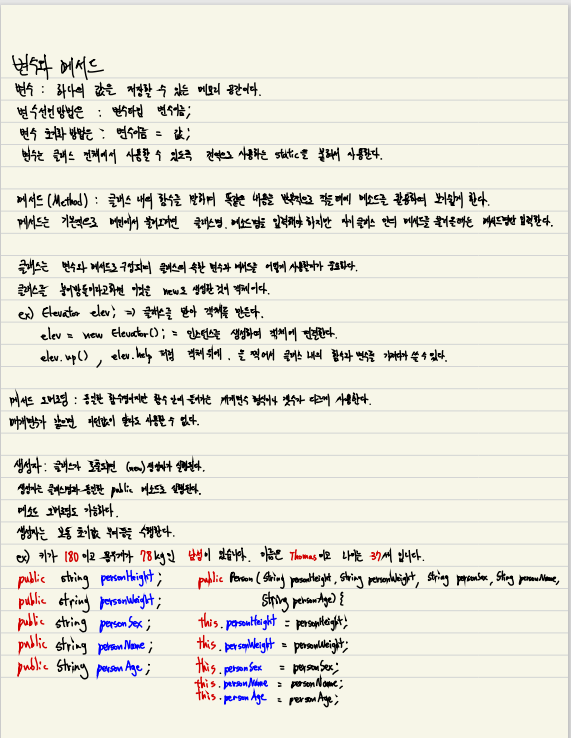 변수와 메서드
변수 : 하나의 값을 저장할 수 있는 메모리 공간이다.
변수선언방법은 : 변수타입 변수이름;
변수 초기화 방법은 : 변수이름 = 값;
변수는 클래스 전체에서 사용할 수 있도록 전역으로 사용하는 static을 붙여서 사용한다.
메서드(Method) : 클래스 내의 함수를 말하며 똑같은 내용을 반복적으로 적을때에 메소드를 활용하여 보기쉽게 한다.
메서드는 기본적으로 메인에서 불러오려면 클래스명.메소드명을 입력해야 하지만 자기 클래스 안의 메서드를 불러올때는 메서드명만 입력한다.
클래스는 변수와 메서드로 구성되며 클래스에 속한 변수와 메서드를 어떻게 사용할지가 중요하다.
클래스를 붕어빵틀이라고하면 이것을 new로 생성한 것이 객체이다.
ex) Elevator elev; => 클래스를 받아 객체를 만든다.
elev = new Elevator(); = 인스턴스를 생성하여 객체에 연결한다.
elev.up() , elev.help 처럼 객체 뒤에 . 을 찍어서 클래스 내의 함수와 변수를 가져다가 쓸 수 있다.
메서드 오버로딩 : 동일한 함수명이지만 함수 안에 들어가는 매개변수 형식이나 갯수가 다르게 사용한다.
매개변수가 같으면 리턴값이 달라도 사용할 수 없다.
생성자 : 클래스가 호출되면 (new) 생성자가 실행된다.
생성자는 클래스명과 동일한 public 메소드로 실행된다.
메소드 오버로딩도 가능하다.
생성자는 보통 초기값 부여등을 수행한다.
ex) 키가 180 이고 몸무게가 78kg인 남성이 있습니다. 이름은 Thomas이고 나이는 37세 입니다.
public string personHeight; public Person ( String personHeight, String personWeight, String personSex, String personName,
public string personWeight; String personAge) {
public string personSex; this.personHeight = personHeight;
public string personName; this.personWeight = personWeight;
public String personAge; this.personSex = personSex;
this.personName = personName;
this.personAge = personAge;